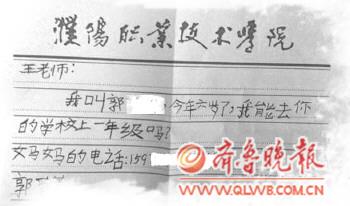 濮阳职业技术学院
王老师：
我叫郭 今年六岁了，我能去你
的学校上一年级吗？
女马女马的电话：159
郭
齐鲁晚报
WWW.QLWB.COM.CN